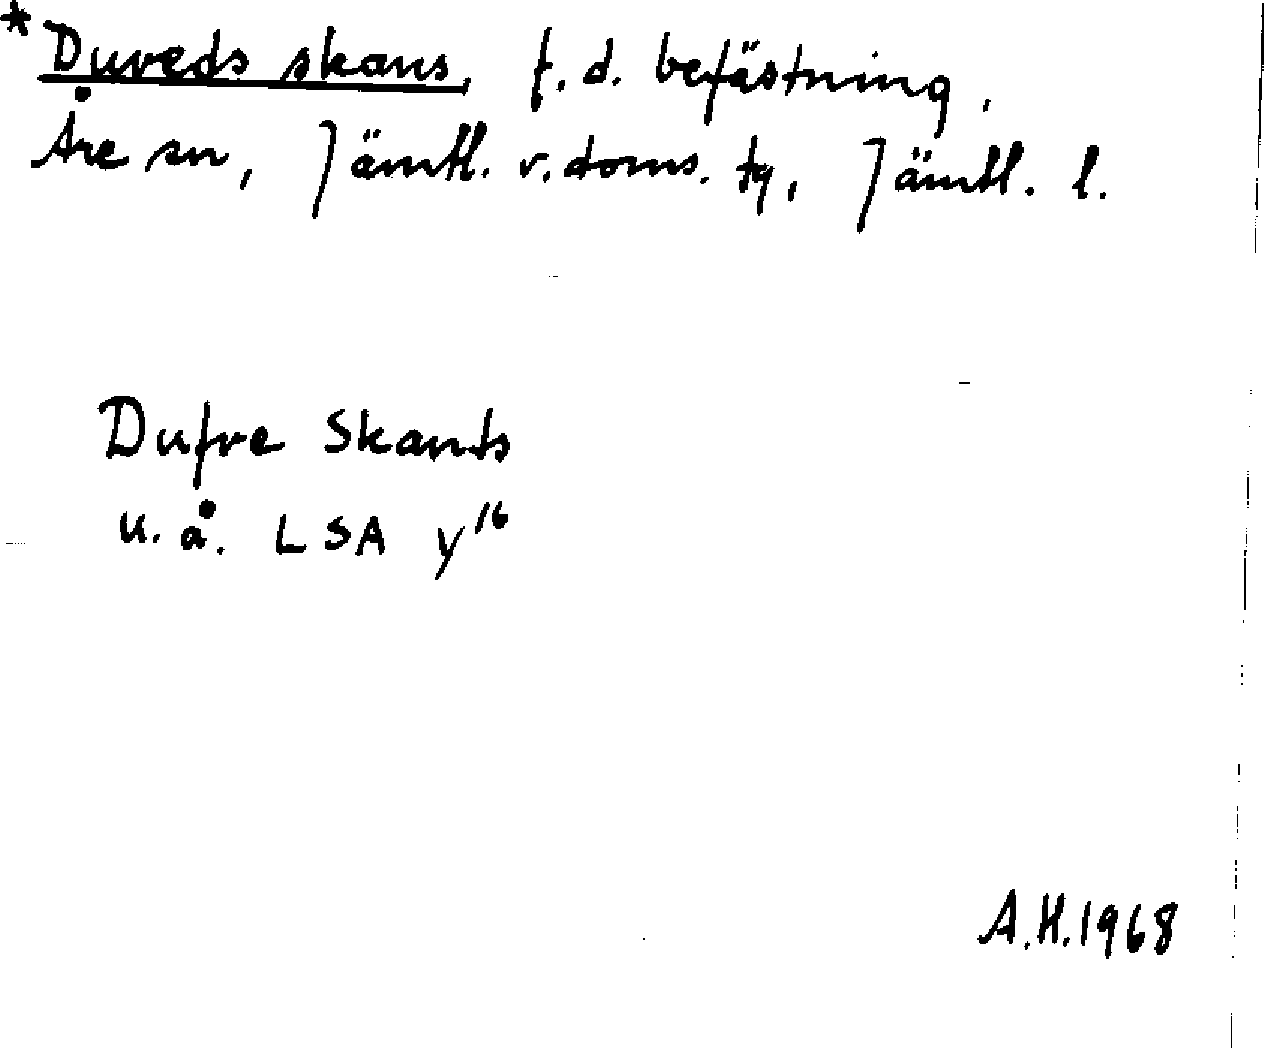 * Duveds skans, f. d. befästning,
Åre sn, Jämtl. v. doms. tg, Jämtl. l.
Dufre Skants
u. å. LSA y¹⁶
A.H. 1968